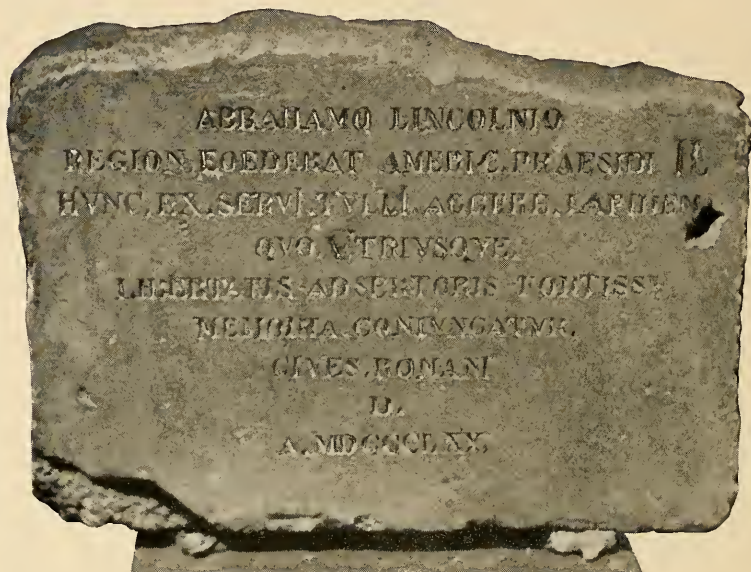 ABRAHAMO LINCOLNIO
REGION. FOEDERAT AMERIC. PRAESIDI II.
HVNC. EX. SERVI. TVLLI. AGGERE. LAPIDEM
QVO. VTRIVSQVE.
LIBERTATIS ADSERTORIS FORTISS.
MEMORIA. CONIVNGATVR.
CIVES. ROMANI
D.
A. MDCCCLXX.